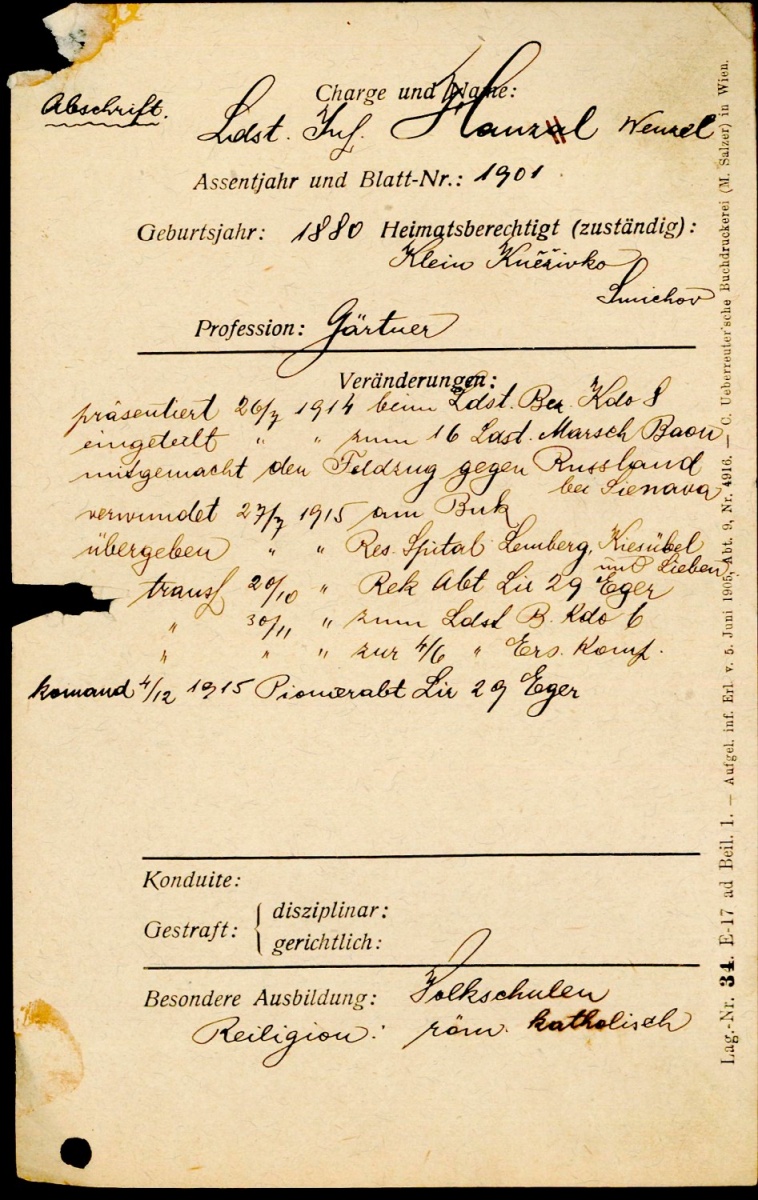 Abschrift.
Charge und Name:
Ldst. Inf. Hanzal Wenzel
Assentjahr und Blatt-Nr.: 1901
Geburtsjahr: 1880 Heimatsberechtigt (zuständig):
Klein Kněživko
Smichov
Profession: Gärtner
Veränderungen:
präsentiert 26/7 1914 beim Ldst. Bez. Kdo 8
eingeteilt " " zum 16 Ldst. Marsch Baon
mitgemacht den Feldzug gegen Russland
bei Sienava
verwundet 27/7 1915 am Buk
übergeben " " Res. Spital Lemberg, Kiesübel
und Lieben
transf 20/10 " Rek Abt Lir 29 Eger
" 30/11 " zum Ldst B. Kdo 6
" " " zur 4/6 " Ers. Komp.
komand 4/12 1915 Pionierabt Lir 29 Eger
Konduite:
Gestraft: { disziplinar:
gerichtlich:
Besondere Ausbildung: Volkschulen
Reiligion: röm. katholisch
Lag.-Nr. 34. E-17 ad Beil. 1. — Aufgel. inf. Erl. v. 5. Juni 1905, Abt. 9, Nr. 4916. — C. Ueberreuter'sche Buchdruckerei (M. Salzer) in Wien.